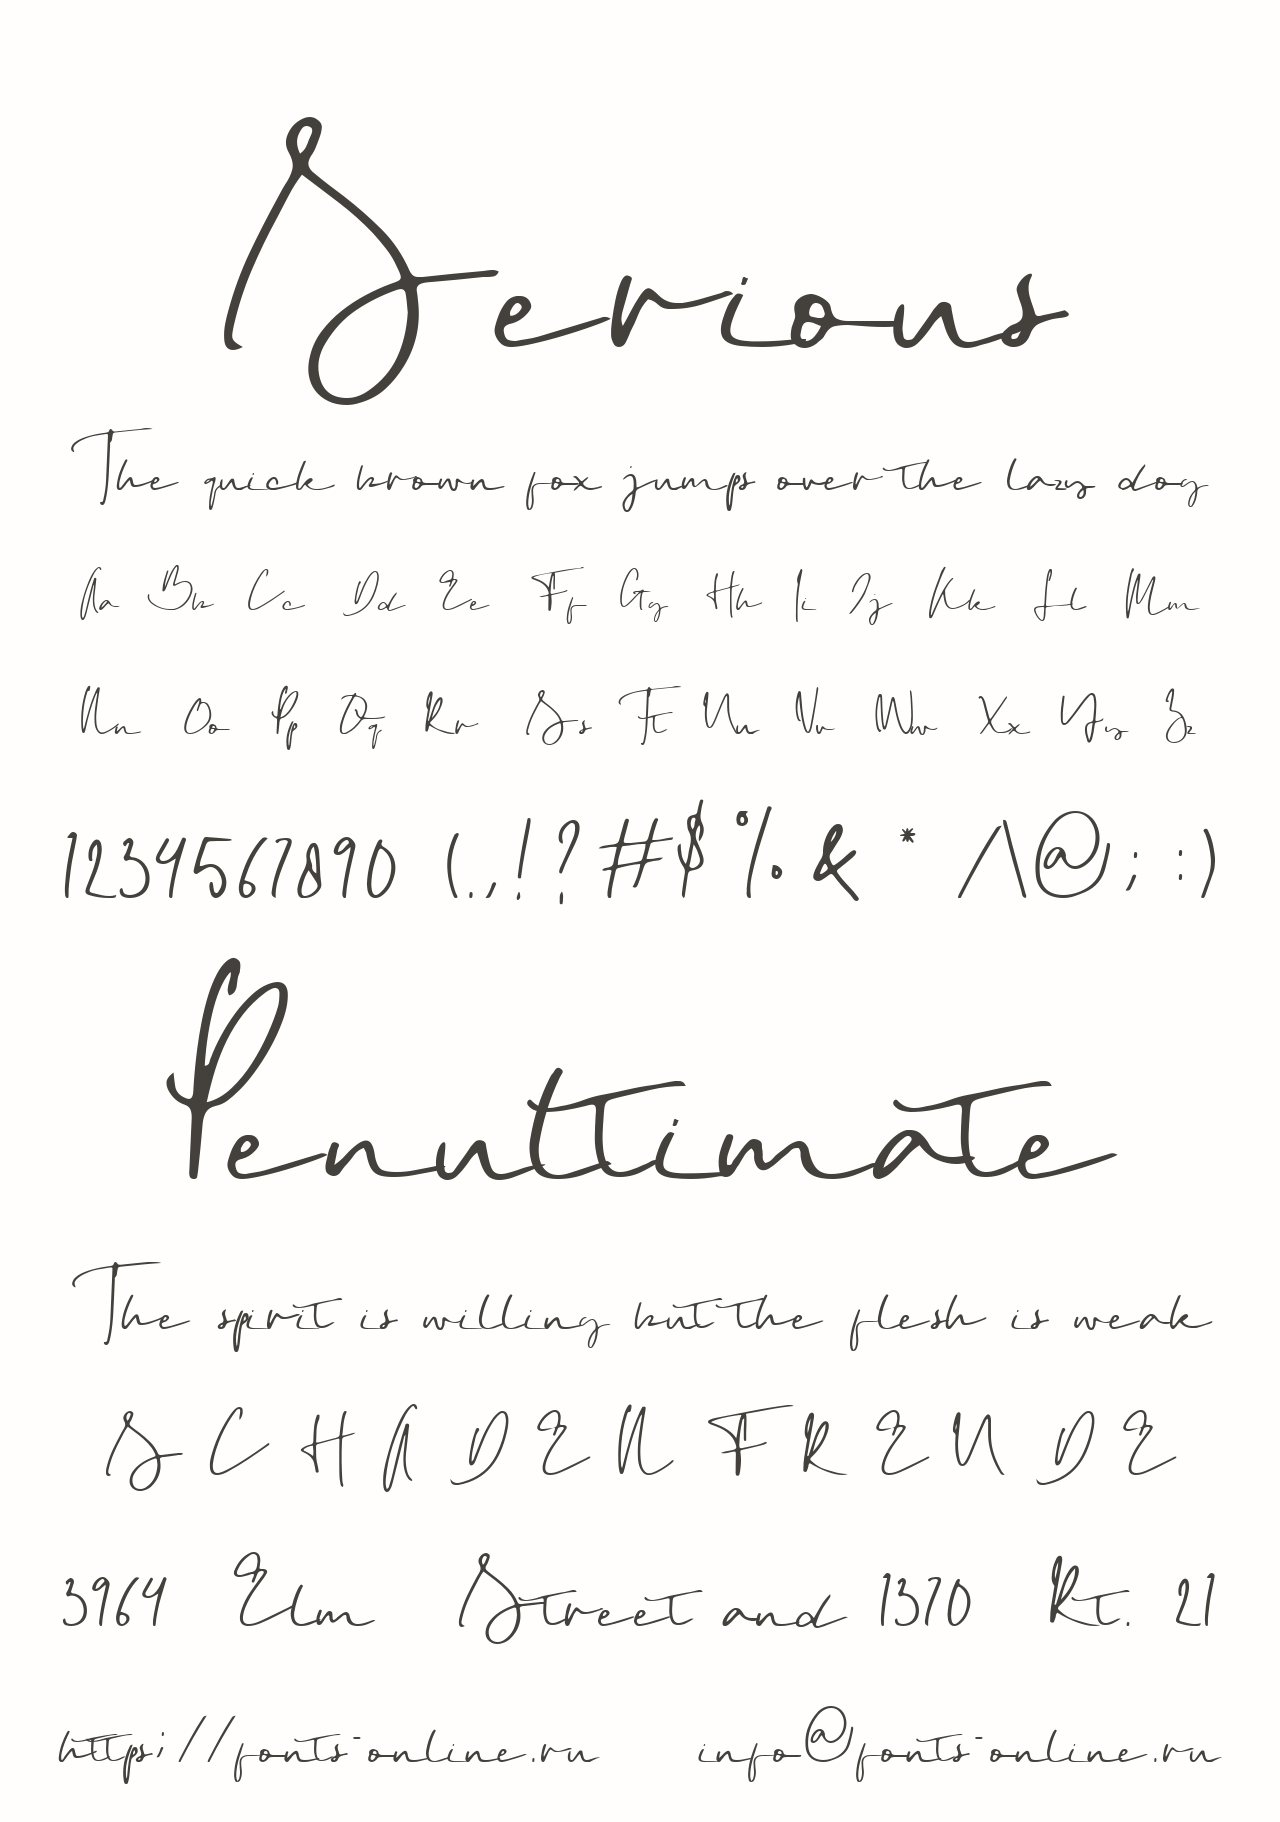 Serious
The quick brown fox jumps over the lazy dog
Aa Bb Cc Dd Ee Ff Gg Hh Ii Jj Kk Ll Mm
Nn Oo Pp Qq Rr Ss Tt Uu Vv Ww Xx Yy Zz
1234567890 (.,!?#$%& * /\@; :)
Penultimate
The spirit is willing but the flesh is weak
S C H A D E N F R E U D E
3964 Elm Street and 1370 Rt. 21
https;//fonts-online.ru info@fonts-online.ru